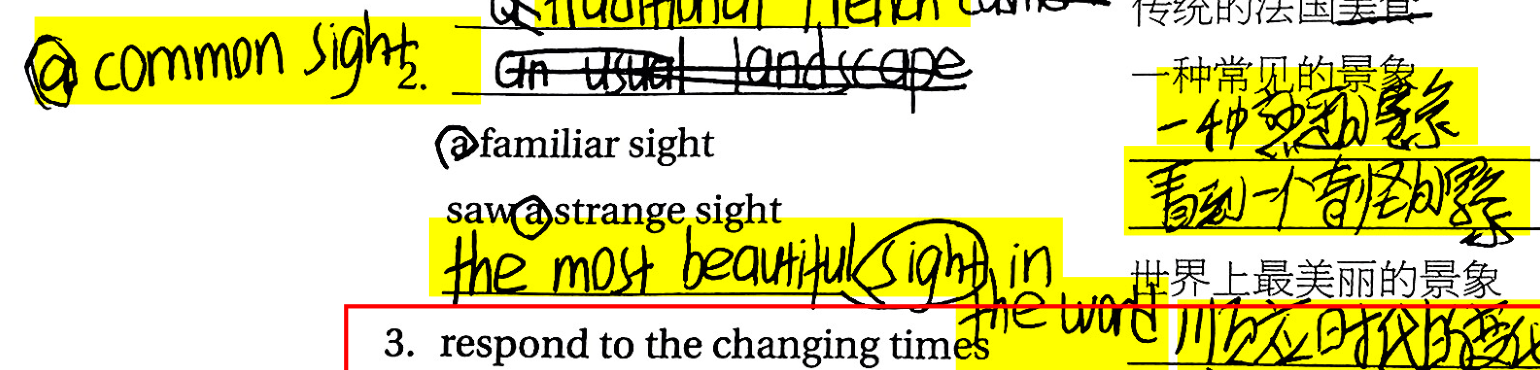 traditional French
传统的法国美食
a common sight
2.
an usual landscape
一种常见的景象
a familiar sight
一种熟悉的景象
saw a strange sight
看到一个奇怪的景象
the most beautiful sight in
the word
世界上最美丽的景象
3. respond to the changing times
顺应时代的变化